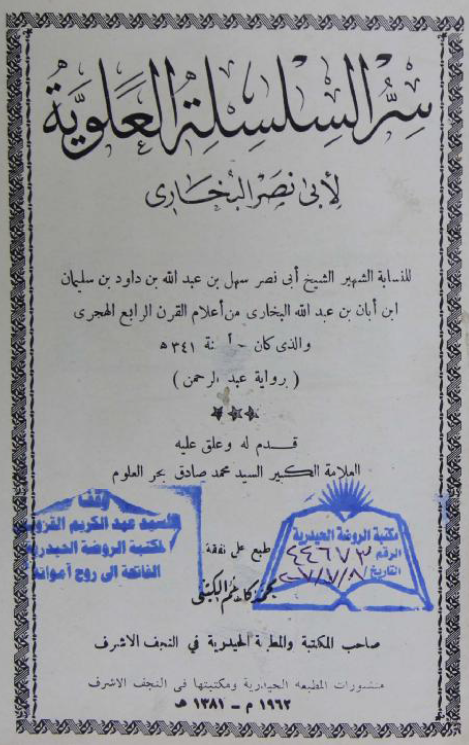 سِرُّ السِلسِلةِ العَلَويَّة
لأبى نَصرِ البُخَارى
للنسابة الشهير الشيخ أبى نصر سهل بن عبد الله بن داود بن سليمان
ابن أبان بن عبد الله البخارى من أعلام القرن الرابع الهجرى
والذى كان سنة ٣٤١ ه
( رواية عبد الرحمن )
قدم له وعلق عليه
العلامة الكبير السيد محمد صادق بحر العلوم
وقف
السيد عبد الكريم
لمكتبة الروضة الحيدرية
الفاتحة الى روح أمواته
مكتبة الروضة الحيدرية
الرقم ٤٤٦٧٣
التاريخ
طبع على نفقة
محمد كاظم الكتبى
صاحب المكتبة والمطبعة الحيدرية فى النجف الاشرف
منشورات المطبعه الحيدرية ومكتبتها فى النجف الاشرف
١٩٦٢ م – ١٣٨١ هـ